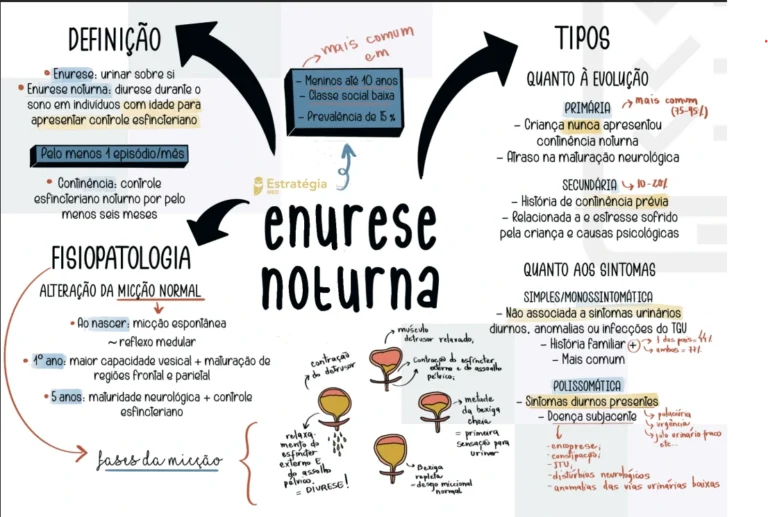 DEFINIÇÃO
• Enurese: urinar sobre si
• Enurese noturna: diurese durante o
sono em indivíduos com idade para
apresentar controle esfincteriano
Pelo menos 1 episódio/mês
• Continência: controle
esfincteriano noturno por pelo
menos seis meses
mais comum
em
- Meninos até 10 anos
- Classe social baixa
- Prevalência de 15 %
Estratégia
MED
enurese
noturna
FISIOPATOLOGIA
ALTERAÇÃO DA MICÇÃO NORMAL
• Ao nascer: micção espontânea
~ reflexo medular
• 1º ano: maior capacidade vesical + maturação de
regiões frontal e parietal
• 5 anos: maturidade neurológica + controle
esfincteriano
fases da micção
músculo
detrusor relaxado,
contração do esfíncter
externo e do assoalho
pélvico;
metade
da bexiga
cheia
= primeira
sensação para
urinar
Bexiga
repleta
- desejo miccional
normal
contração
do detrusor
relaxa-
mento do
esfíncter
externo E
do assolho
pélvico.
= DIURESE!
TIPOS
QUANTO À EVOLUÇÃO
PRIMÁRIA → mais comum
(75-95%)
- Criança nunca apresentou
continência noturna
- Atraso na maturação neurológica
SECUNDÁRIA ↳ 10-20%
- História de continência prévia
- Relacionada a e estresse sofrido
pela criança e causas psicológicas
QUANTO AOS SINTOMAS
SIMPLES/MONOSSINTOMÁTICA
- Não associada a sintomas urinários
diurnos, anomalias ou infecções do TGU
- História familiar + → 1 dos pais = 44%
→ ambos = 77%
- Mais comum
POLISSOMÁTICA
- Sintomas diurnos presentes
- Doença subjacente
↳ polaciúria
↳ urgência
↳ jato urinário fraco
etc...
- encoprese;
- constipação;
- ITU,
- distúrbios neurológicos
- anomalias das vias urinárias baixas